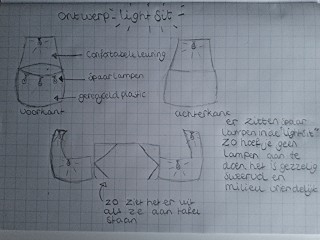 ontwerp-light sit-
Comfortabele leuning
Spaar lampen
gerecycled plastic
voorkant
achterkant
er zitten spaar
lampen in de light sit"
zo hoef je geen
lampen aan te
doen het is gezellig
sfeervol en
milieu vriendelijk
zo ziet het er uit
als ze aan tafel
staan